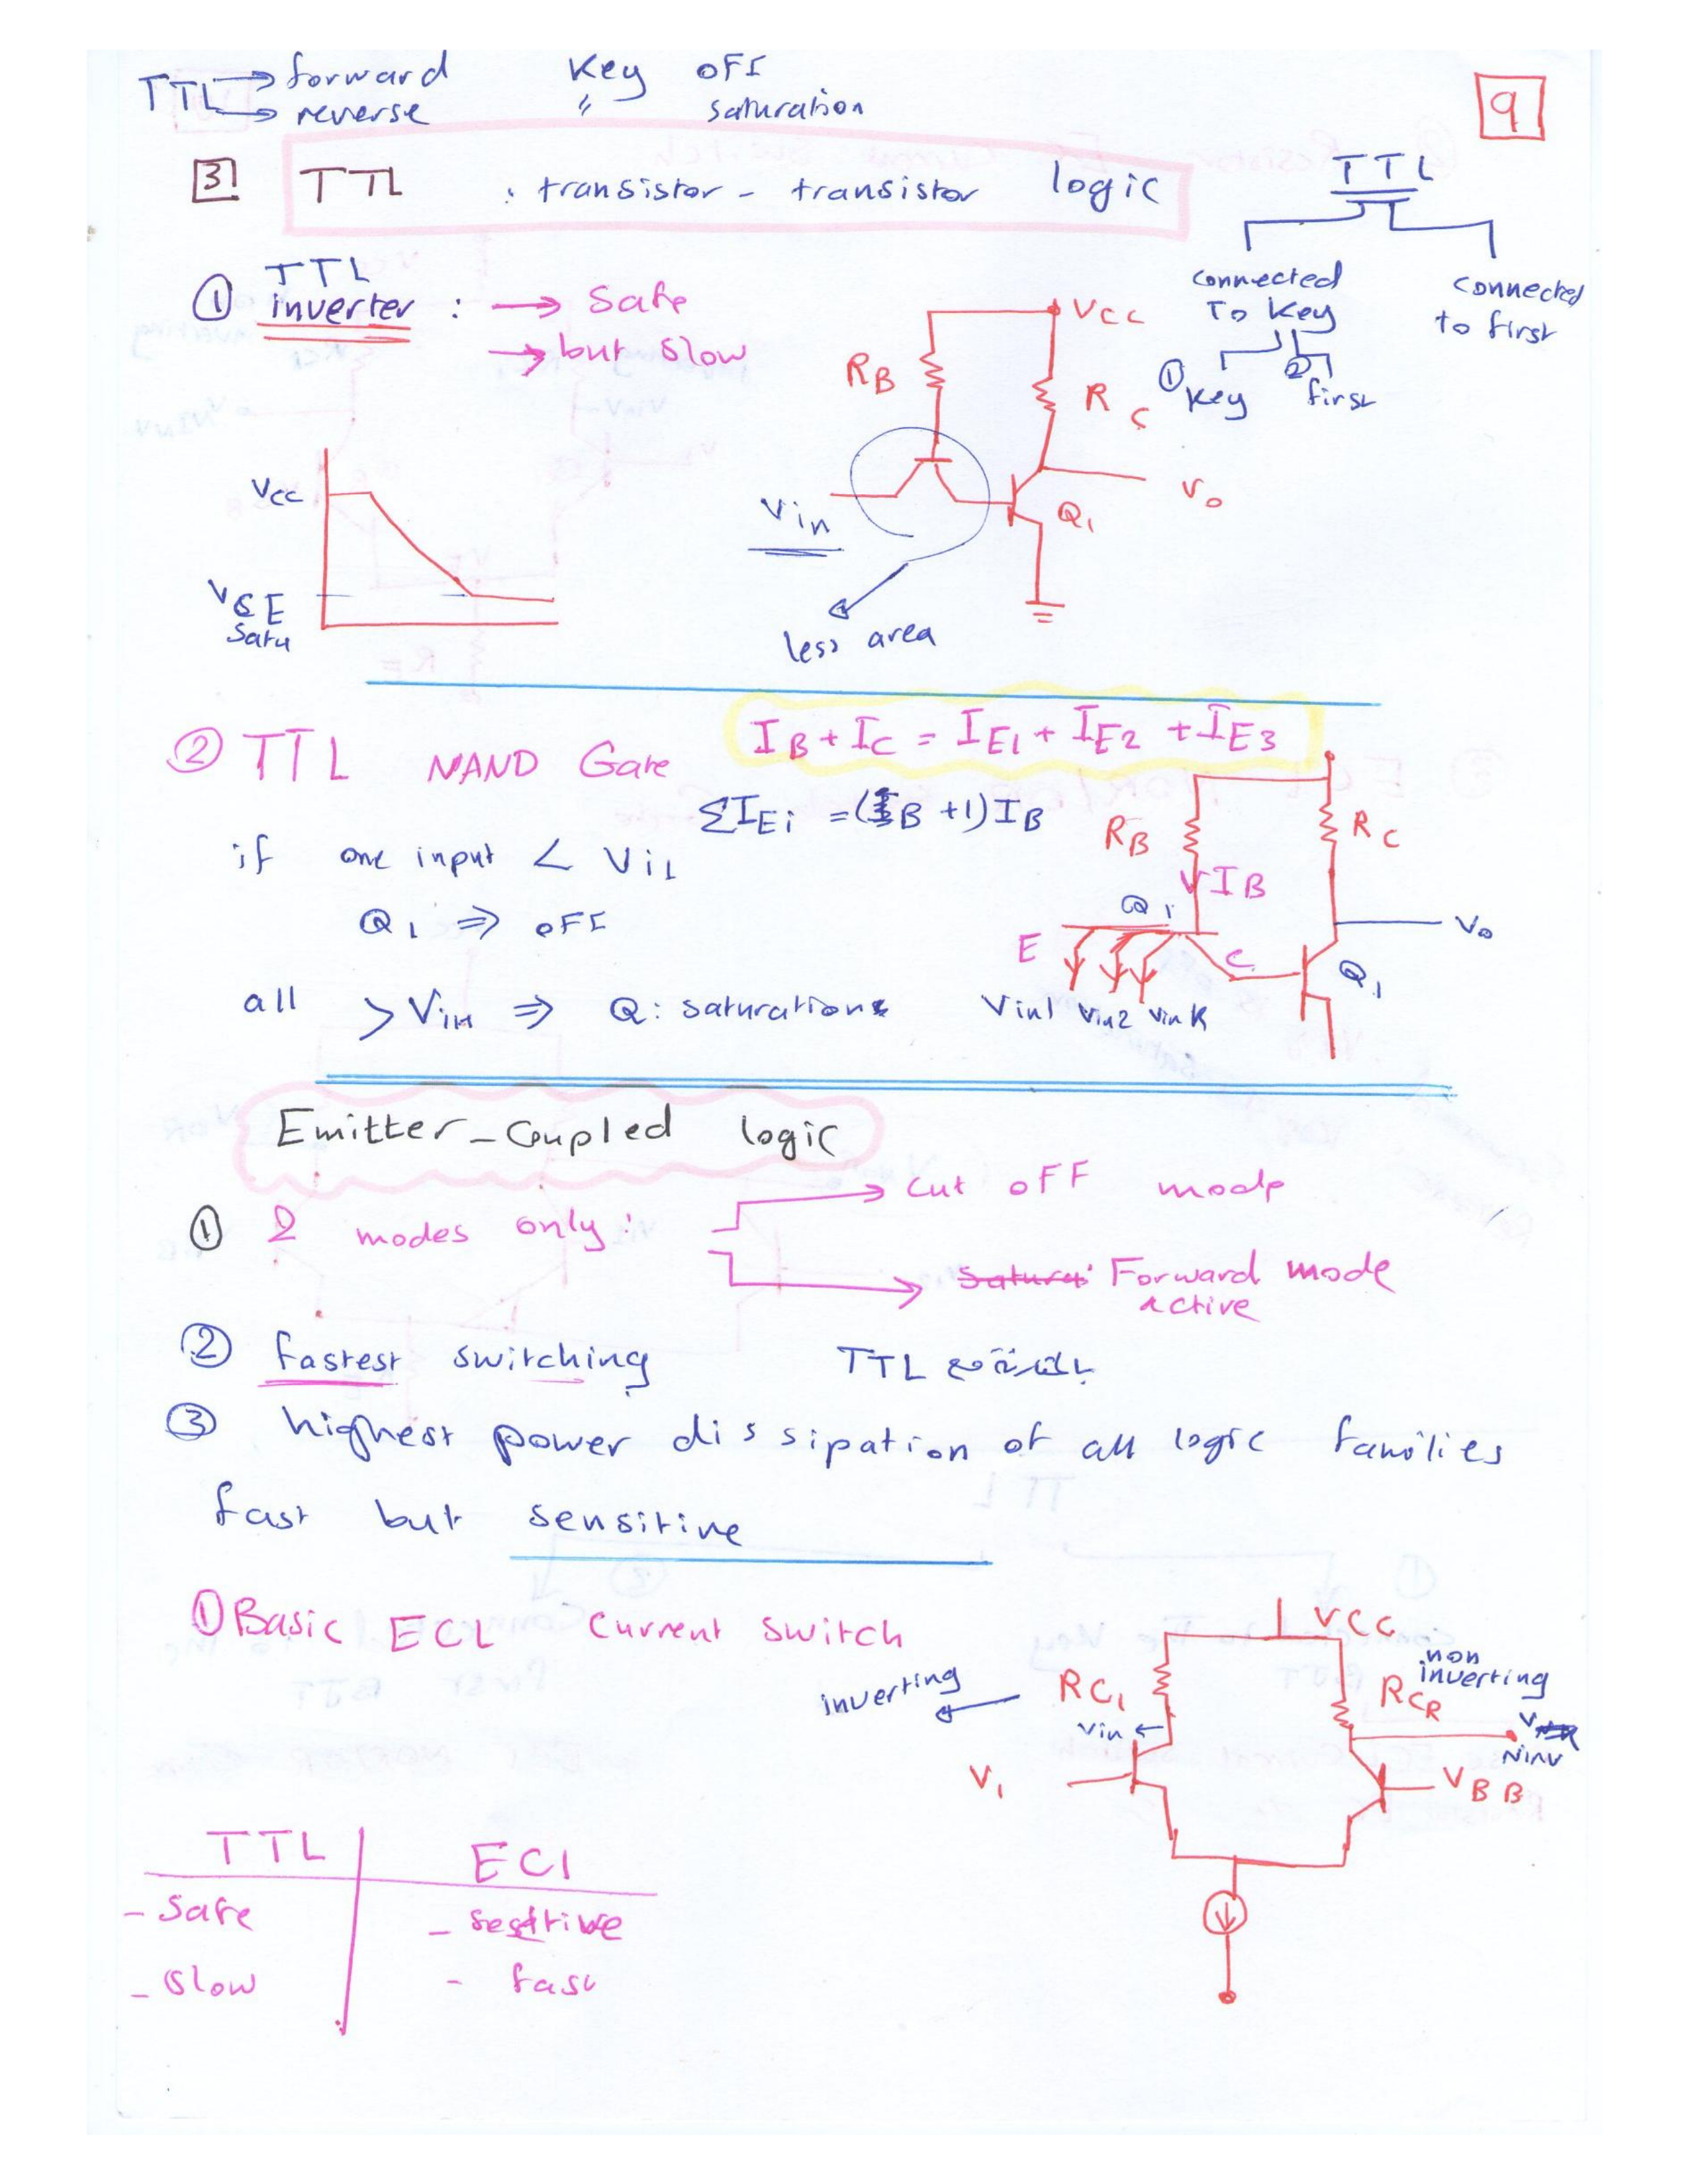 TTL → forward Key oFF
→ reverse " saturation
9
3 TTL : transistor - transistor logic
TTL
connected To Key
connected to first
① Key ② first
① TTL inverter : → Safe
→ but slow
VCC
RB
RC
Vin
Vo
Q1
less area
VCC
VCE
Satu
② TTL NAND Gate
IB + IC = IE1 + IE2 + IE3
ΣIEi = (βB +1)IB
if one input < ViL
Q1 ⇒ oFF
all > ViH ⇒ Q: saturation
RB
RC
IB
Q1
E
C
Vo
Q1
Vin1 Vin2 Vin K
Emitter - Coupled logic
① 2 modes only :
→ cut oFF mode
→ Satura Forward mode
active
② fastest switching بالمقارنة مع TTL
③ highest power dissipation of all logic families
fast but sensitive
① Basic ECL Current switch
VCC
inverting ←
RC1
RCR
non
inverting
Vin ←
V
Ninv
V1
VBB
TTL ECL
- Safe - sesitive
- Slow - fast